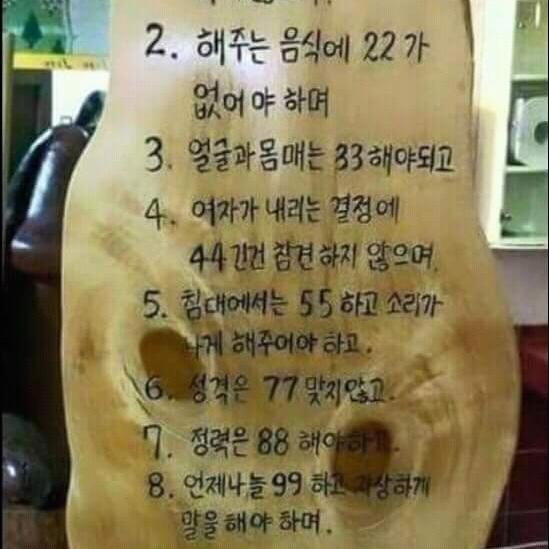 2. 해주는 음식에 22가
없어야 하며
3. 얼굴과몸매는 33해야되고
4. 여자가 내리는 결정에
44건건 참견 하지 않으며,
5. 침대에서는 55 하고 소리가
나게 해주어야 하고.
6. 성격은 77 맞지않고.
7. 정력은 88 해야하고.
8. 언제나늘 99 하고 자상하게
말을 해야 하며.